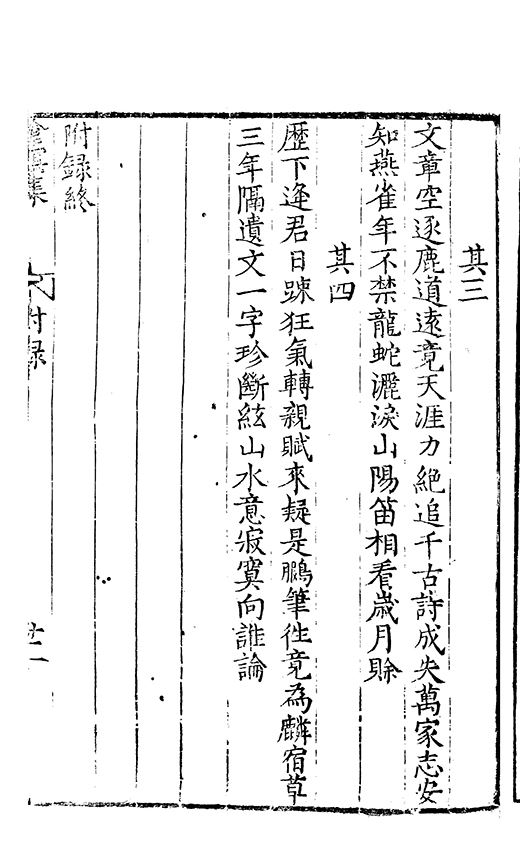 其三
文章空逐鹿道遠竟天涯力絶追千古詩成失萬家志安
知燕雀年不禁龍蛇灑淚山陽笛相看歲月賖
其四
歷下逢君日踈狂氣轉親賦來疑是鵩筆徃竟為麟宿草
三年隔遺文一字珍斷絃山水意寂寞向誰論
附録終
附録
廿一